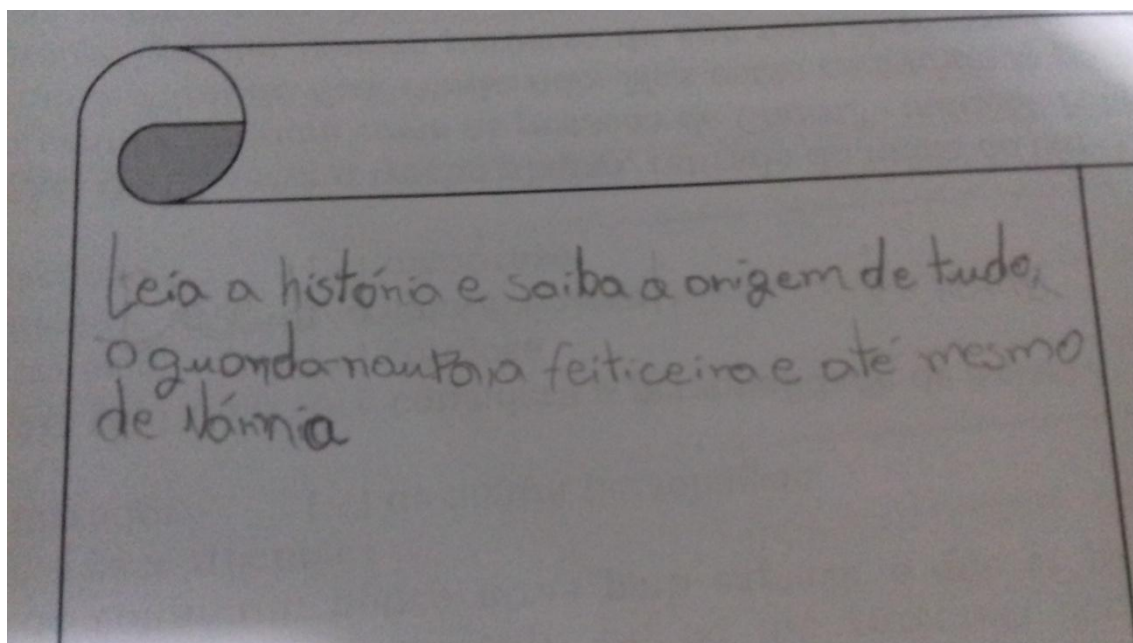 Leia a história e saiba a origem de tudo,
o guarda-roupa, a feiticeira e até mesmo
de Nárnia